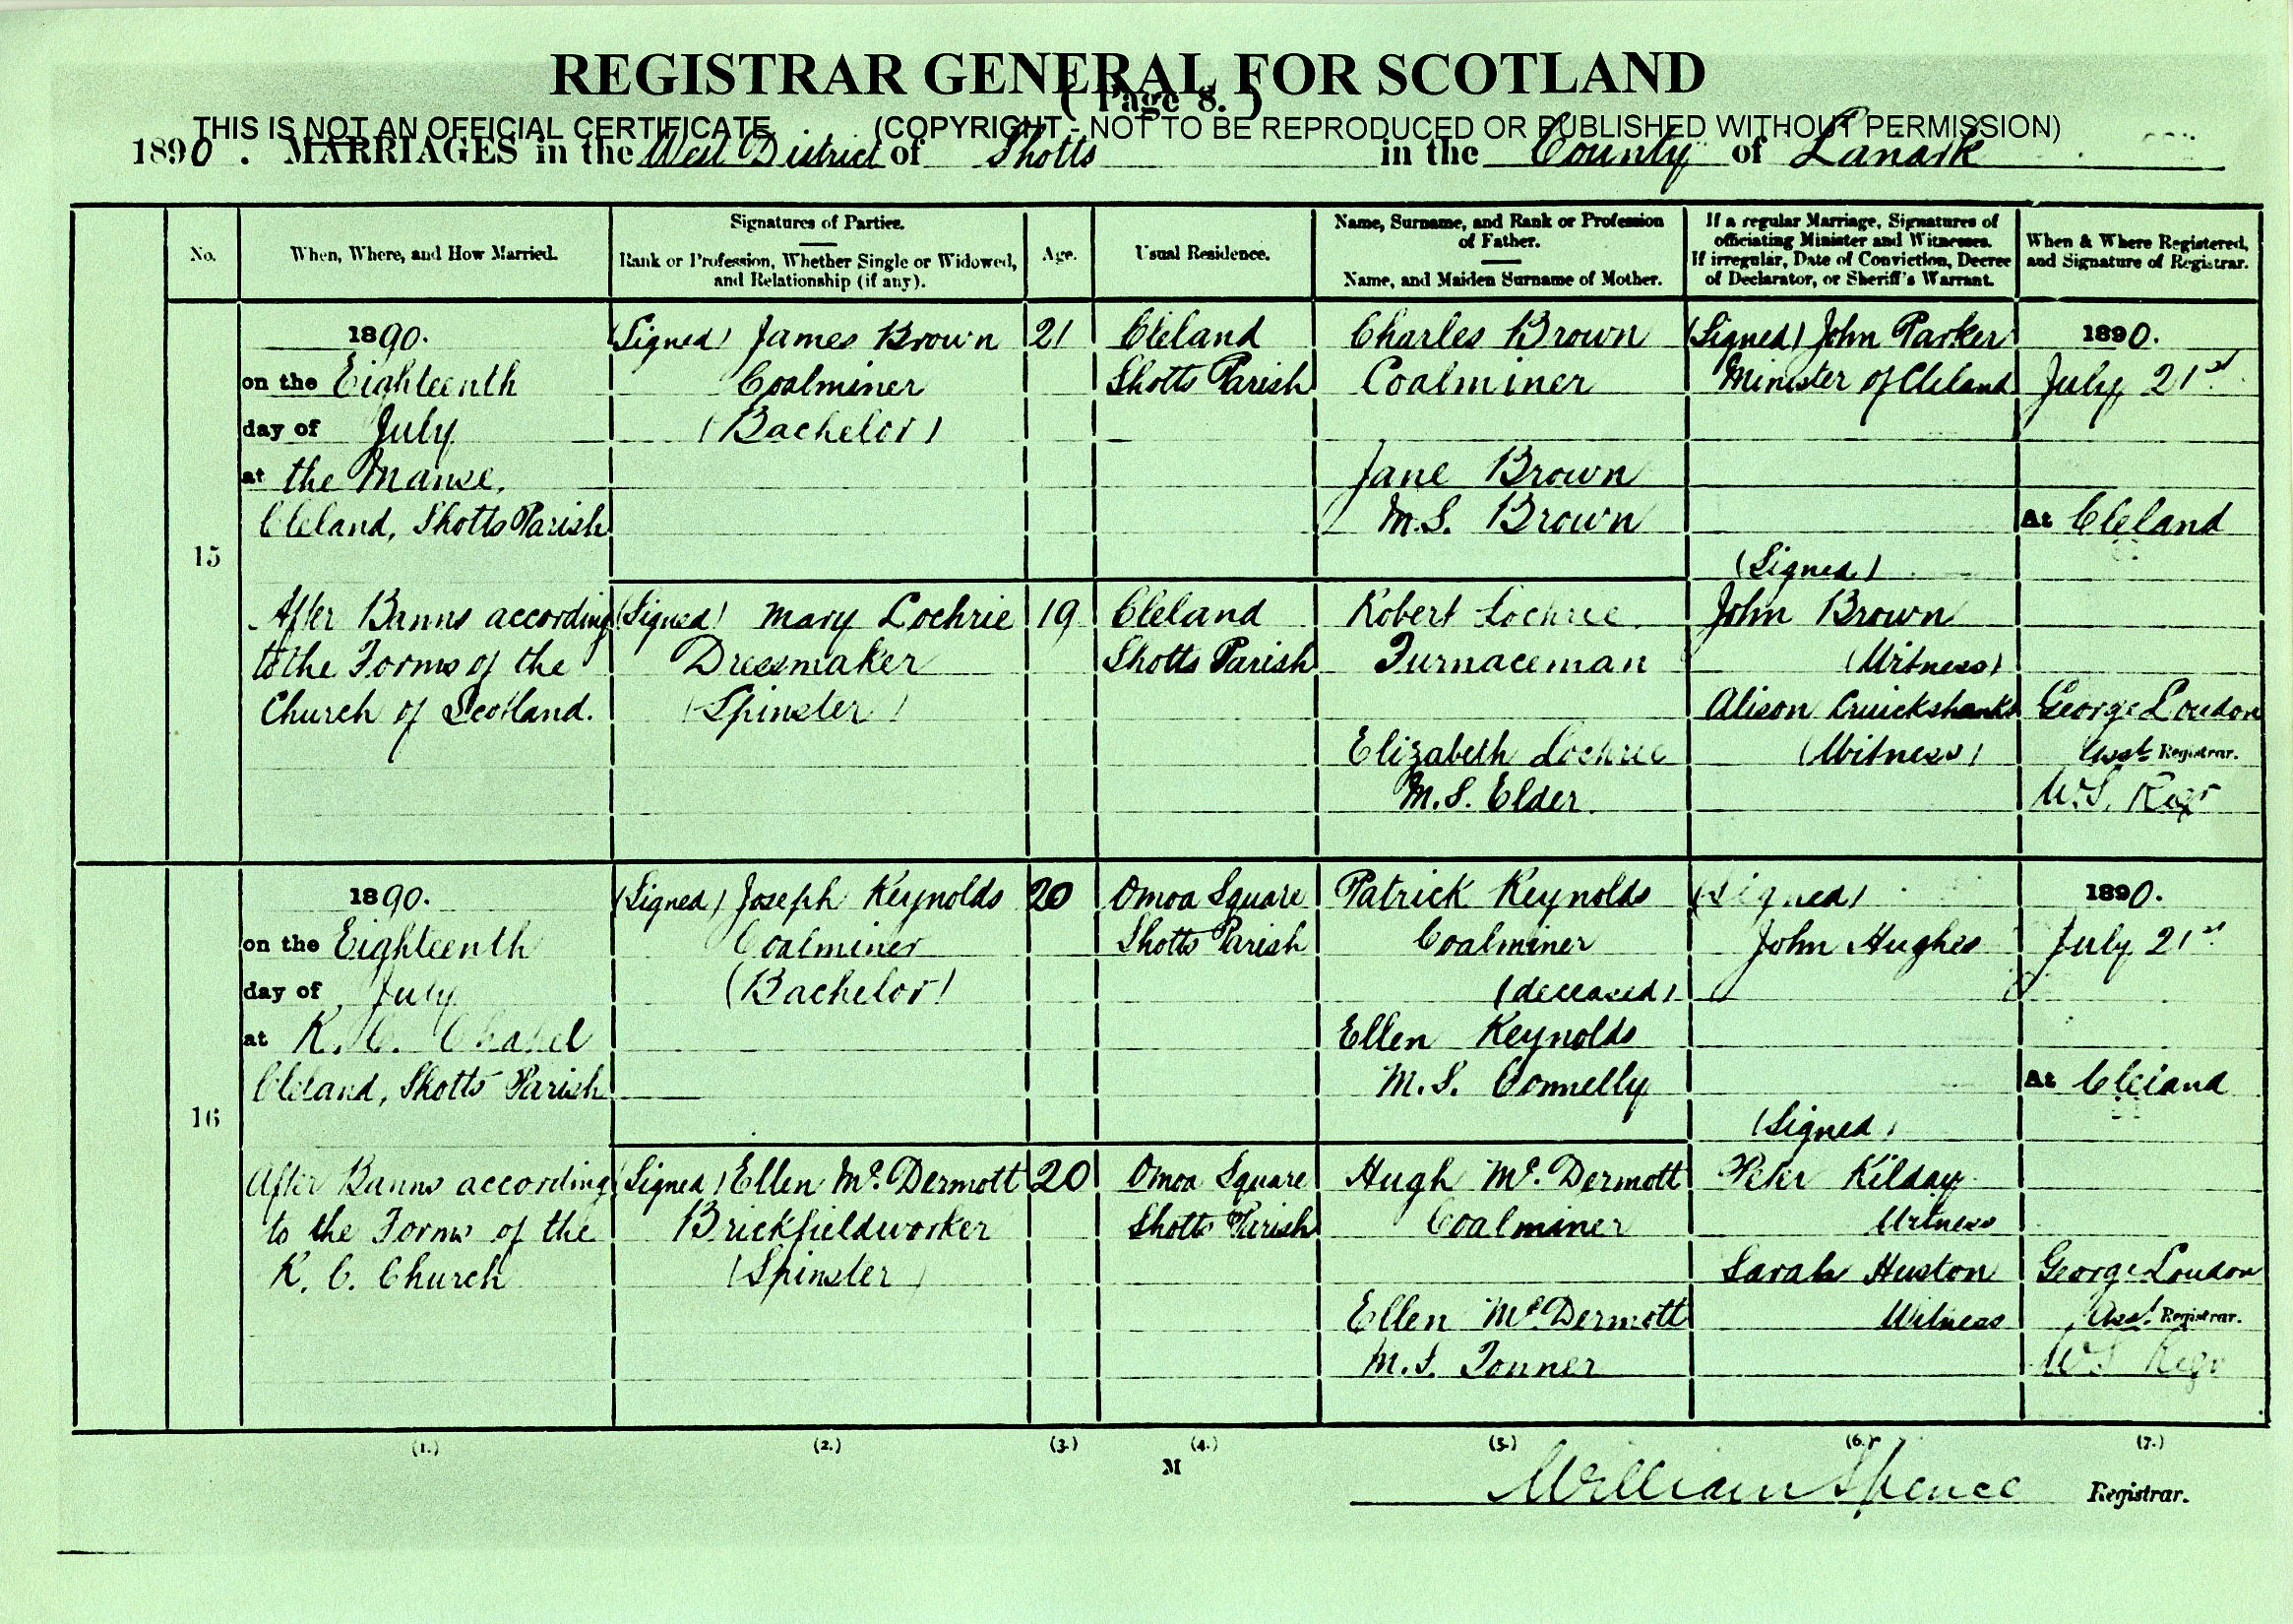 REGISTRAR GENERAL FOR SCOTLAND
( Page 8. )
THIS IS NOT AN OFFICIAL CERTIFICATE (COPYRIGHT - NOT TO BE REPRODUCED OR PUBLISHED WITHOUT PERMISSION)
1890. MARRIAGES in the West District of Shotts in the County of Lanark
No.
When, Where, and How Married.
Signatures of Parties.
Rank or Profession, Whether Single or Widowed,
and Relationship (if any).
Age.
Usual Residence.
Name, Surname, and Rank or Profession
of Father.
Name, and Maiden Surname of Mother.
If a regular Marriage, Signatures of
officiating Minister and Witnesses.
If irregular, Date of Conviction, Decree
of Declarator, or Sheriff's Warrant.
When & Where Registered,
and Signature of Registrar.
15
1890.
on the Eighteenth
day of July
at the Manse,
Cleland, Shotts Parish
After Banns according
to the Forms of the
Church of Scotland.
(Signed) James Brown
Coalminer
(Bachelor)
21
Cleland
Shotts Parish
Charles Brown
Coalminer
Jane Brown
M.S. Brown
(Signed) John Parker
Minister of Cleland
(Signed) Mary Lochrie
Dressmaker
(Spinster)
19
Cleland
Shotts Parish
Robert Lochrie
Furnaceman
Elizabeth Lochrie
M.S. Elder.
(Signed)
John Brown
(Witness)
Alison Cruickshanks
(Witness)
1890.
July 21st
At Cleland
George Loudon
Asst. Registrar.
W.S.
16
1890.
on the Eighteenth
day of July
at R. C. Chapel
Cleland, Shotts Parish
After Banns according
to the Forms of the
R. C. Church
(Signed) Joseph Reynolds
Coalminer
(Bachelor)
20
Omoa Square
Shotts Parish
Patrick Reynolds
Coalminer
(deceased)
Ellen Reynolds
M.S. Connelly
(Signed)
John Hughes
(Signed) Ellen McDermott
Brickfieldworker
(Spinster)
20
Omoa Square
Shotts Parish
Hugh McDermott
Coalminer
Ellen McDermott
M.S. Tonner
(Signed)
Peter Kilday
Witness
Sarah Huston
Witness
1890.
July 21st
At Cleland
George Loudon
Asst. Registrar.
W.S.
(1.) (2.) (3.) (4.) (5.) (6.) (7.)
M
William Spence Registrar.